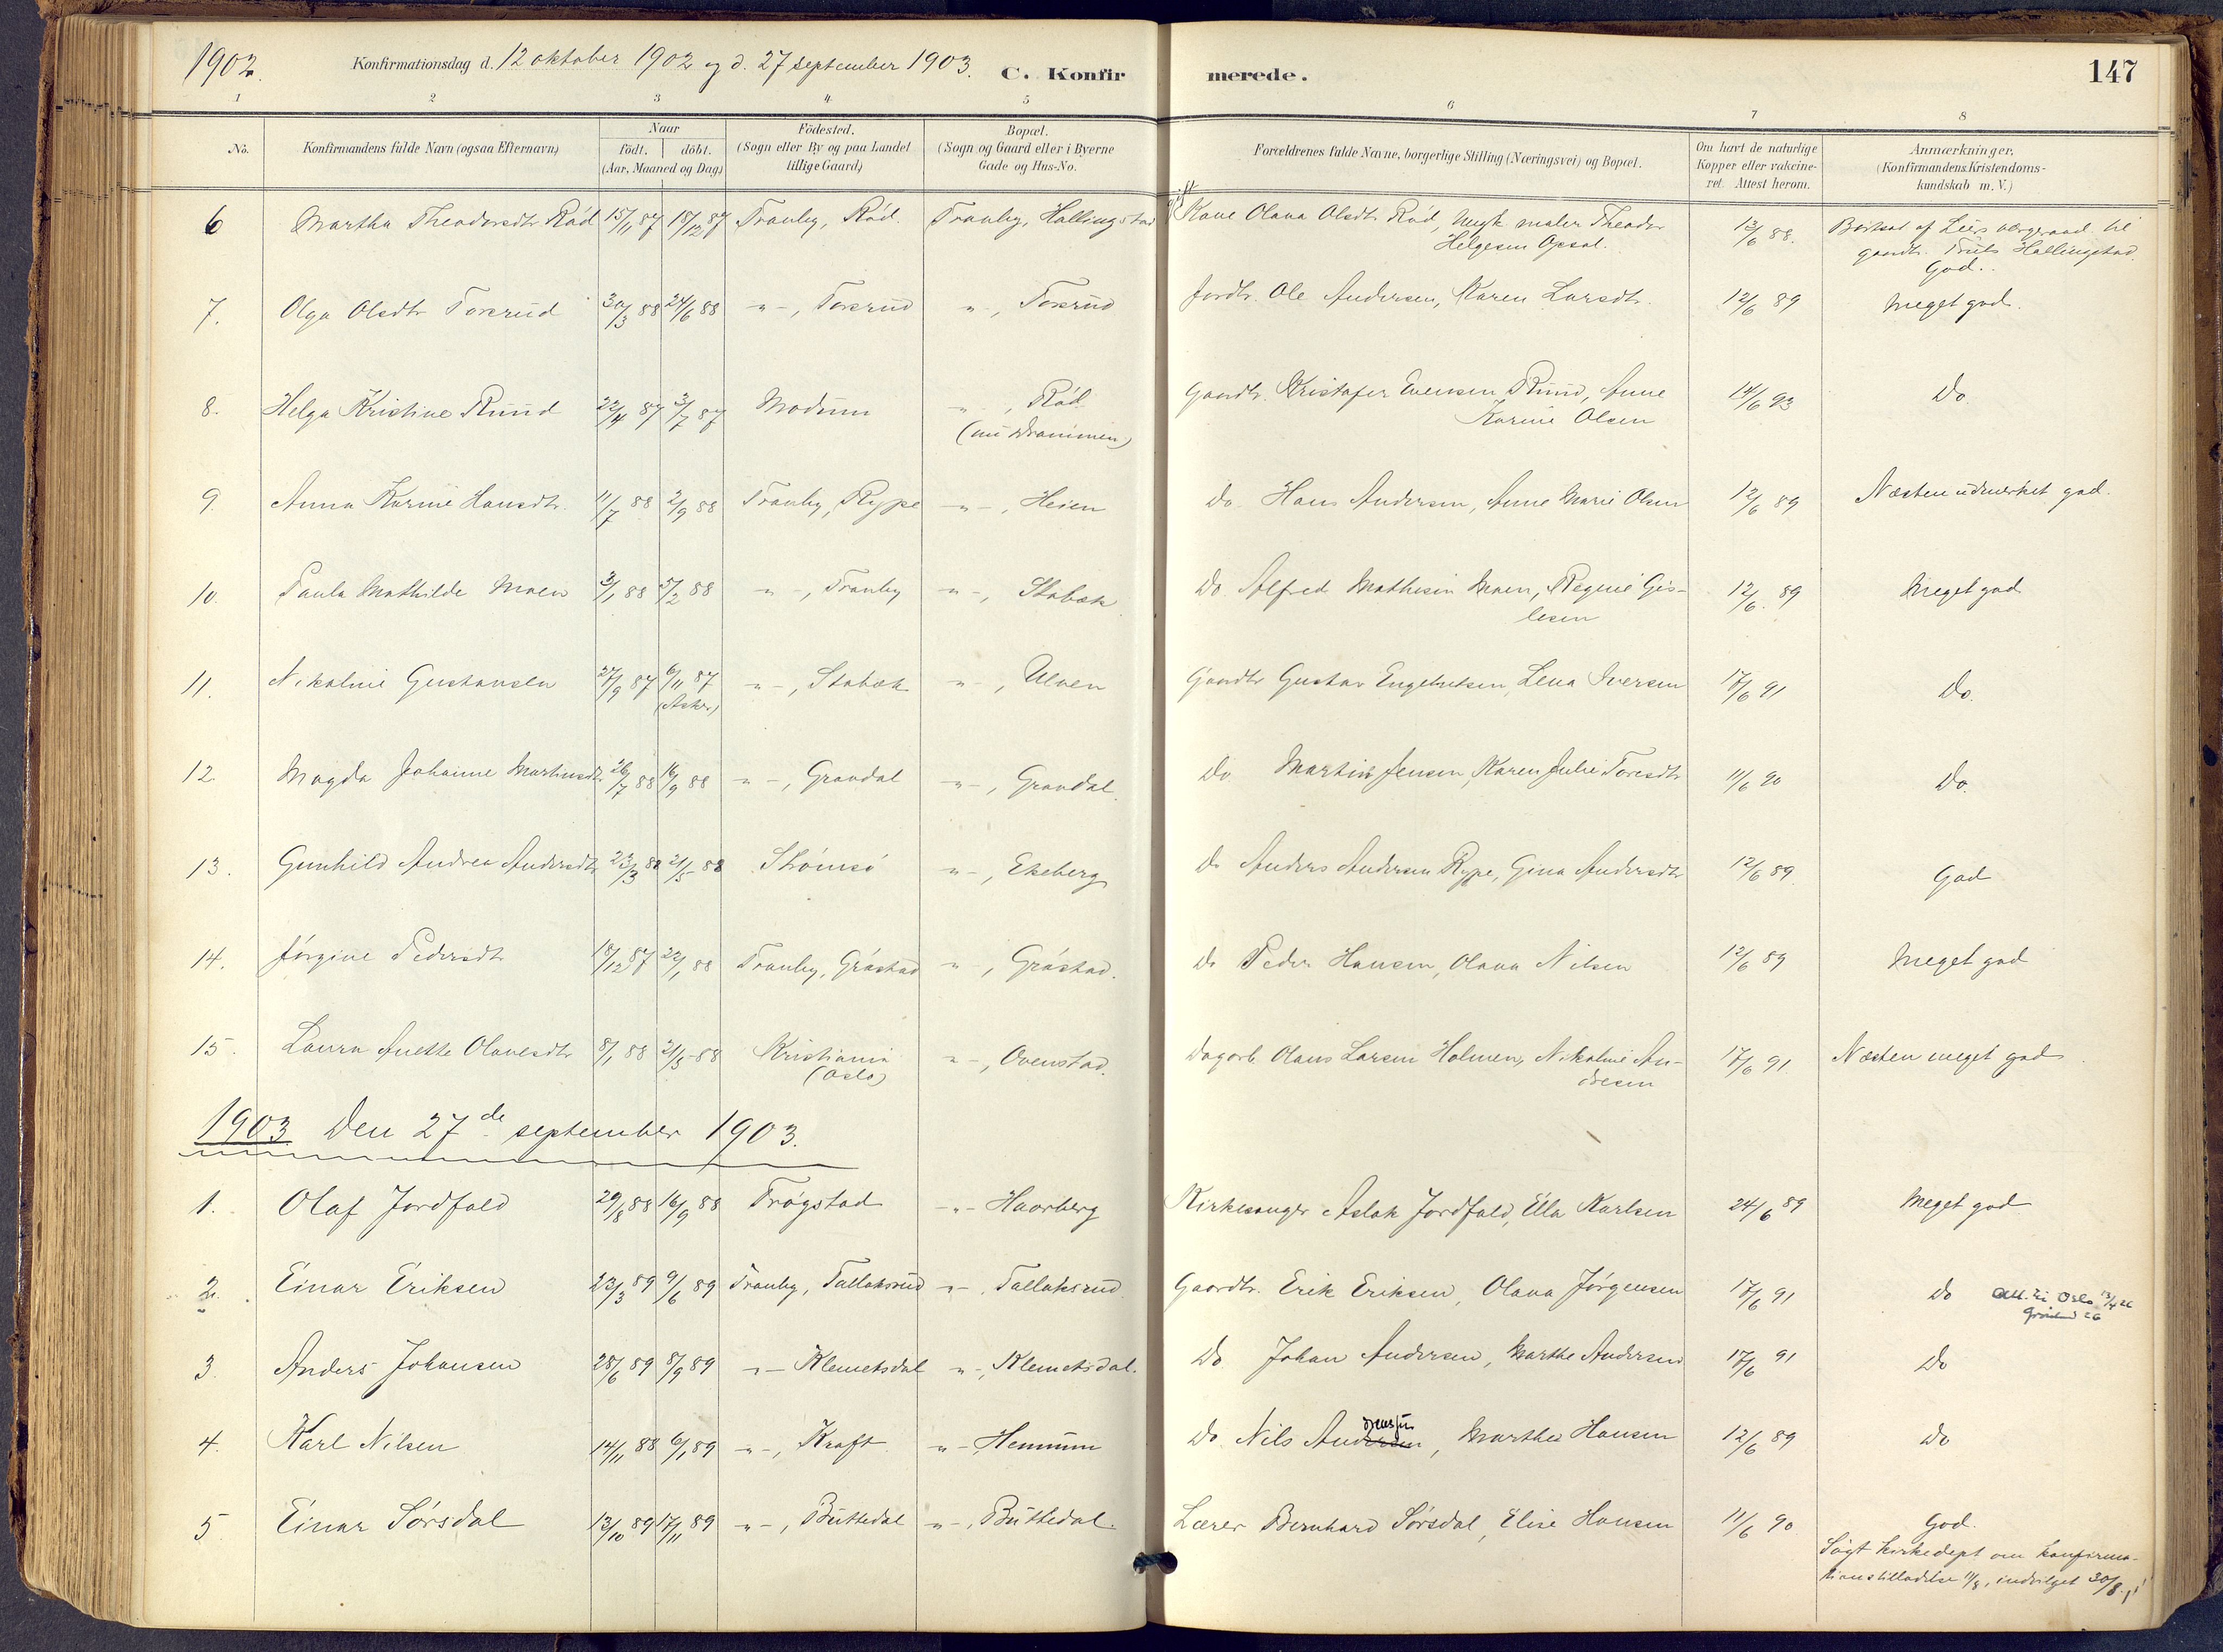 1902.
Konfirmationsdag d. 12 oktober 1902 og d. 27 september 1903.
C. Konfirmerede.
147
1 2 3 4 5 6 7 8
No.
Konfirmandens fulde Navn (ogsaa Efternavn)
Naar
födt. | döbt.
(Aar, Maaned og Dag)
Födested.
(Sogn eller By og paa Landet
tillige Gaard)
Bopæl.
(Sogn og Gaard eller i Byerne
Gade og Hus-No.
Forældrenes fulde Navne, borgerlige Stilling (Næringsvei) og Bopæl.
Om havt de naturlige
Kopper eller vakcine-
ret. Attest herom.
Anmærkninger,
(Konfirmandens Kristendoms-
kundskab m. V.)
6 Martha Theodorsdtr Rød 15/11 87 18/12 87 Tranby, Rød. Tranby, Hallingstad Kone Olava Olsdtr Rød, Ungk maler Theodor 12/6 88. Bortsat af Liers værgeraad til
Helgesen Opsal. gaardbr. Hallingstad.
God.
7. Olga Olsdtr Toverud 30/3 88 24/6 88 "-, Toverud "-, Toverud Jordbr. Ole Andersen, Karen Larsdtr. 12/6 89 Meget god.
8. Helga Kristine Ruud 22/4 87 3/7 87 Modum "-, Rød Gaardbr. Kristofer Evensen Ruud, Anne 14/6 93 Do.
(nu Drammen) Karine Olsen
9. Anna Karine Hansdtr. 11/7 88 2/9 88 Tranby, Rype "-, Heien Do. Hans Andersen, Anne Marie Olsen 12/6 89 Næsten udmerket god.
10. Paula Mathilde Moen 3/1 88 5/2 88 "-, Tranby "-, Stabæk Do. Alfred Mathesin Moen, Regine Gis- 12/6 89 Meget god
lesen
11. Nikoline Gustavsen 27/9 87 6/11 87 "-, Stabæk "-, Ulven Gaardbr Gustav Engebretsen, Lena Iversen 17/6 91 Do.
(Asker)
12. Magda Johanne Martinsdtr. 26/7 88 16/9 88 "-, Gravdal "-, Gravdal. Do Martin Jensen, Karen Julie Toresdtr 11/6 90 Do.
13. Gunhild Andrea Andersdtr 23/3 88 21/5 88 Strömsö "-, Ekeberg Do Anders Andersen Rype, Gina Andersdtr 12/6 89. God
14. Jörgine Pedersdtr 18/12 87 22/1 88 Tranby, Gröstad "-, Gröstad. Do Peder Hansen, Olava Nilsen 12/6 89 Meget god
15. Laura Anette Olavesdtr 8/1 88 21/5 88 Kristiania "-, Ovenstad. Dagarb. Olaus Larsen Holmen, Nikoline An- 17/6 91 Næsten meget god
(Oslo) dresen
1903 Den 27de september 1903.
1. Olaf Jordfald 29/8 88 16/9 88 Trøgstad -"- Haarberg Kirkesanger Aslak Jordfald, Ella Karlsen 24/6 89 Meget god
2. Einar Eriksen 23/3 89 9/6 89 Tranby, Tallaksrud "-, Tallaksrud. Gaardbr. Erik Eriksen, Olava Jörgensen 17/6 91 Do Att. til Oslo 13/4 26
3. Anders Johansen 28/6 89 8/9 89 "- Klemetsdal "-, Klemetsdal. Do Johan Andersen, Marthe Andersen 17/6 91 Do
4. Karl Nilsen 14/11 88 6/1 89 "-, Kraft. "- Hennum Do. Nils Andersen, Marthea Hansen 12/6 89 Do
5 Einar Sörsdal 13/10 89 17/11 89 "-, Büttedal "-, Büttedal. Lærer Bernhard Sörsdal, Elise Hansen 11/6 90. God.
Søgt kirkedept om konfirma-
tionstilladelse 11/8, indvilget 30/8.